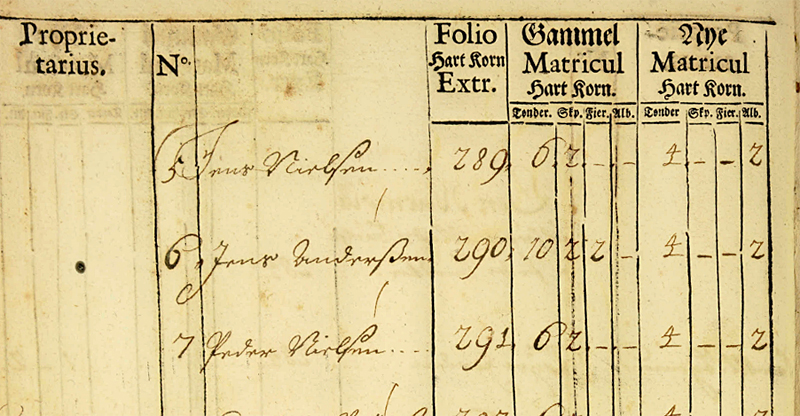 Proprie-
tarius.
No.
Folio
Hart Korn
Extr.
Gammel
Matricul
Hart Korn.
Tonder. Skp. Fier. Alb.
Nye
Matricul
Hart Korn.
Tonder Skp. Fier. Alb.
5 Jens Nielsen 289 6 2 – – 4 – – 2
6 Jens Anderßen 290 10 2 2 – 4 – – 2
7 Peder Nielsen 291 6 2 – – 4 – – 2